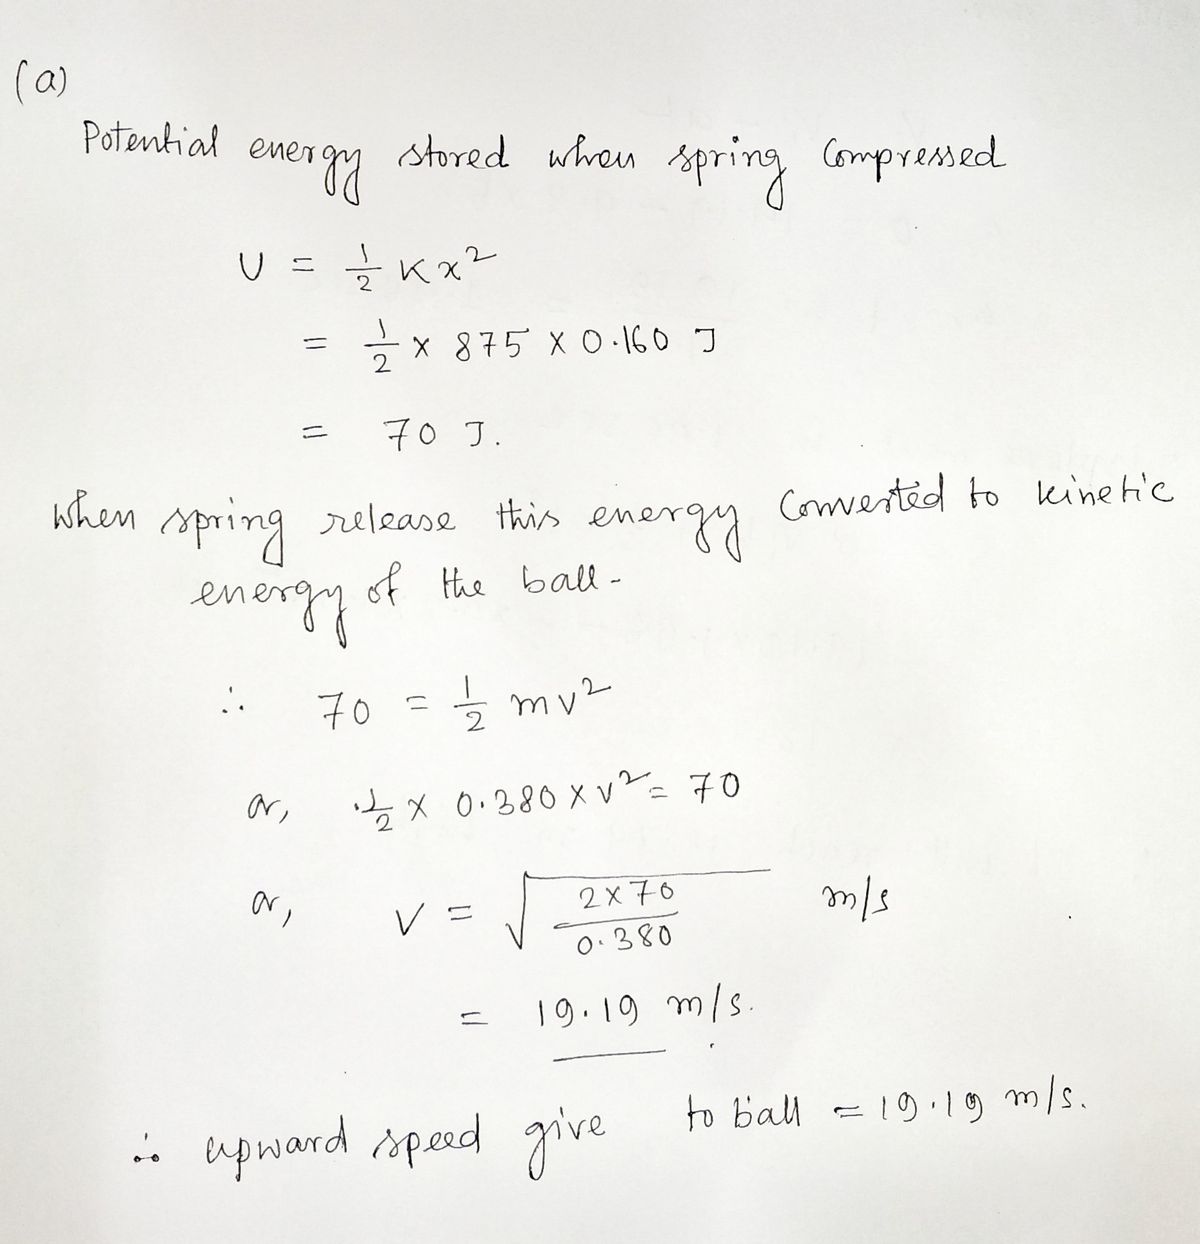 (a)
Potential energy stored when spring compressed
U = 1/2 Kx²
= 1/2 × 875 × 0.160 J
= 70 J.
When spring release this energy converted to kinetic
energy of the ball-
∴ 70 = 1/2 mv²
or, 1/2 × 0.380 × v² = 70
or, v = √(2×70/0.380) m/s
= 19.19 m/s.
∴ upward speed give to ball = 19.19 m/s.